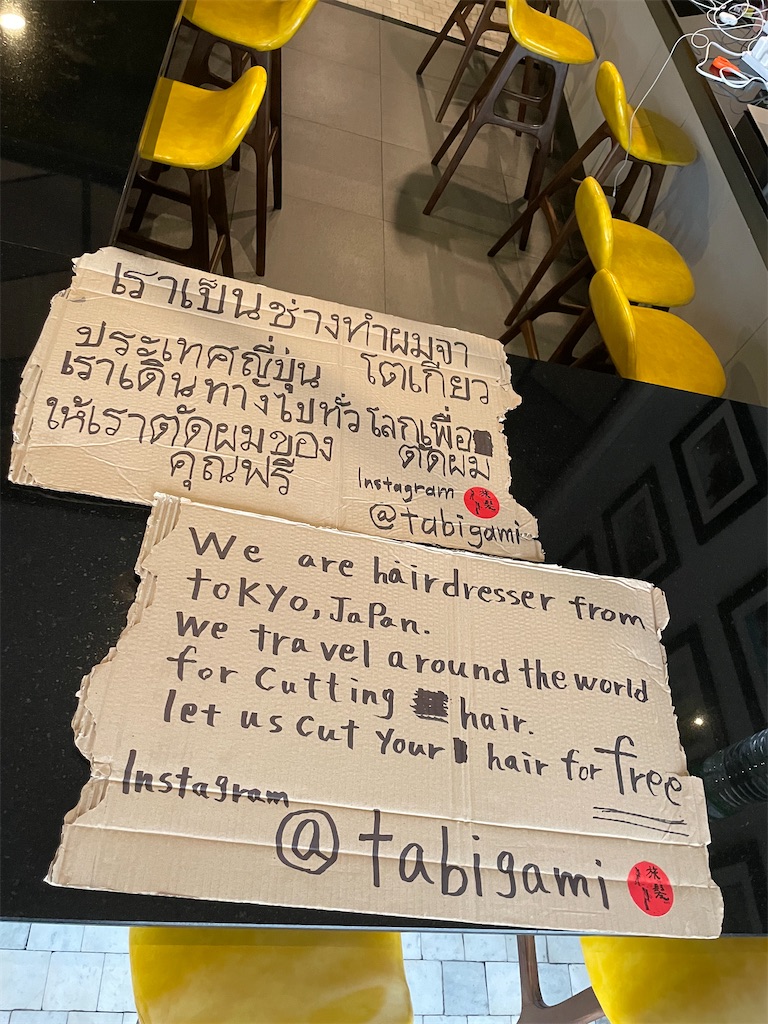 เราเป็นช่างทำผมจา
ประเทศญี่ปุ่น โตเกียว
เราเดินทางไปทั่วโลกเพื่อ
ตัดผม
ให้เราตัดผมของ
คุณฟรี
Instagram
@tabigami
旅髪
We are hairdresser from
TOKYO, JaPan.
We travel around the world
for Cutting hair.
let us cut Your hair for free
Instagram
@tabigami
旅髪